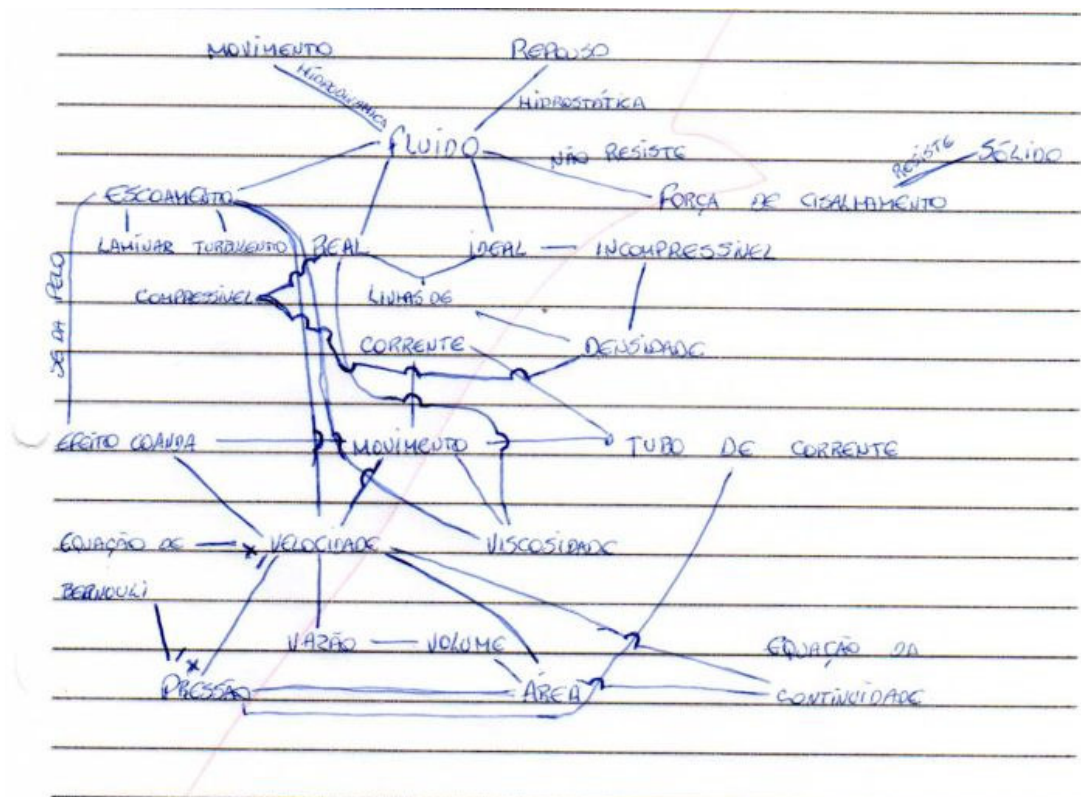 MOVIMENTO REPOUSO
HIDRODINÂMICA HIDROSTÁTICA
FLUIDO NÃO RESISTE RESISTE SÓLIDO
ESCOAMENTO FORÇA DE CISALHAMENTO
LAMINAR TURBULENTO REAL IDEAL INCOMPRESSÍVEL
COMPRESSÍVEL LINHAS DE
SE DA PELO
CORRENTE DENSIDADE
EFEITO COANDA MOVIMENTO TUBO DE CORRENTE
EQUAÇÃO DE VELOCIDADE VISCOSIDADE
BERNOULI
VAZÃO VOLUME EQUAÇÃO DA
PRESSÃO ÁREA CONTINUIDADE